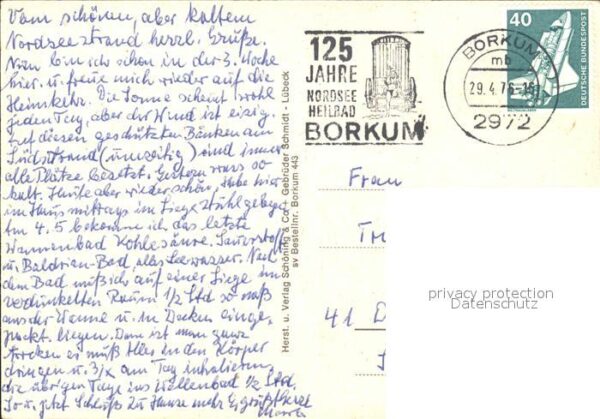 Vom schönen, aber kaltem
Nordseestrand herzl. Grüße.
Nun bin ich schon in der 3. Woche
hier u. freue mich wieder auf die
Heimkehr. Die Sonne scheint wohl
jeden Tag, aber der Wind ist eisig.
auf diesen geschützten Bänken am
Südstrand (unzeitig) sind immer
alle Plätze besetzt. Gestern wars so
kalt. Heute aber wieder schön, habe hier
im Haus mittags im Liegestuhl gelegen
Am 4.5 bekomme ich das letzte
Wannenbad Kohlesäure. Sauerstoff
u. Baldrian-Bad, alles Seewasser. Nach
dem Bad muß ich auf einer Liege im
verdunkelten Raum 1/2 Std so naß
aus der Wanne u. in Decken einge-
packt liegen. Dann ist man ganz
trocken es muß Alles in den Körper
dringen u. 3/x am Tag inhalieren,
die übrigen Tage ins Wellenbad 1/2 Std.
So u. jetzt Schluß zu Hause mehr Es grüßt herzl
Herst. u. Verlag Schöning & Co + Gebrüder Schmidt - Lübeck
sv Bestellnr. Borkum 443
125
JAHRE
NORDSEE
HEILBAD
BORKUM
BORKUM
mb
29.4.76-18
2972
40
DEUTSCHE BUNDESPOST
Frau
41 D
privacy protection
Datenschutz